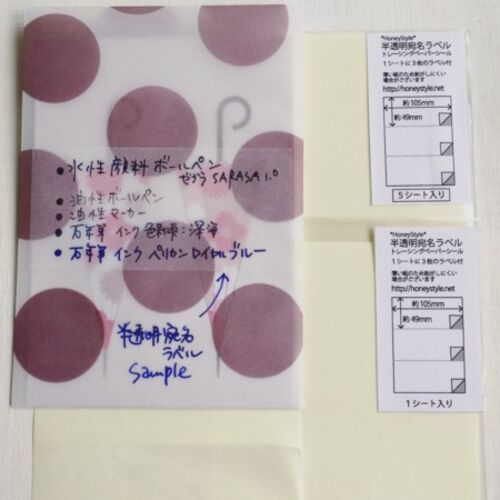 • 水性顔料ボールペン
ゼブラ SARASA 1.0
• 油性ボールペン
• 油性マーカー
• 万年筆 インク 色彩雫:深海
• 万年筆 インク ペリカン ロイヤルブルー
半透明宛名
ラベル
Sample
*HoneyStyle*
半透明宛名ラベル
トレーシングペーパーシール
1シートに3枚のラベル付
薄い紙のため剥がしにくい
場合がございます
http://honeystyle.net
約105mm
約49mm
5シート入り
*HoneyStyle*
半透明宛名ラベル
トレーシングペーパーシール
1シートに3枚のラベル付
薄い紙のため剥がしにくい
場合がございます
http://honeystyle.net
約105mm
約49mm
1シート入り